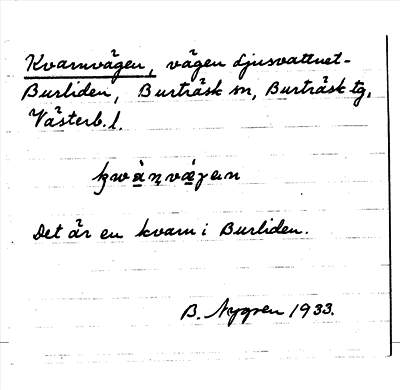 Kvarnvägen, vägen Ljusvattnet-
Burliden, Burträsk sn, Burträsk tg,
Västerb. l.
kwà̱ṇvæ̱gɐn
Det är en kvarn i Burliden.
B. Nygren 1933.